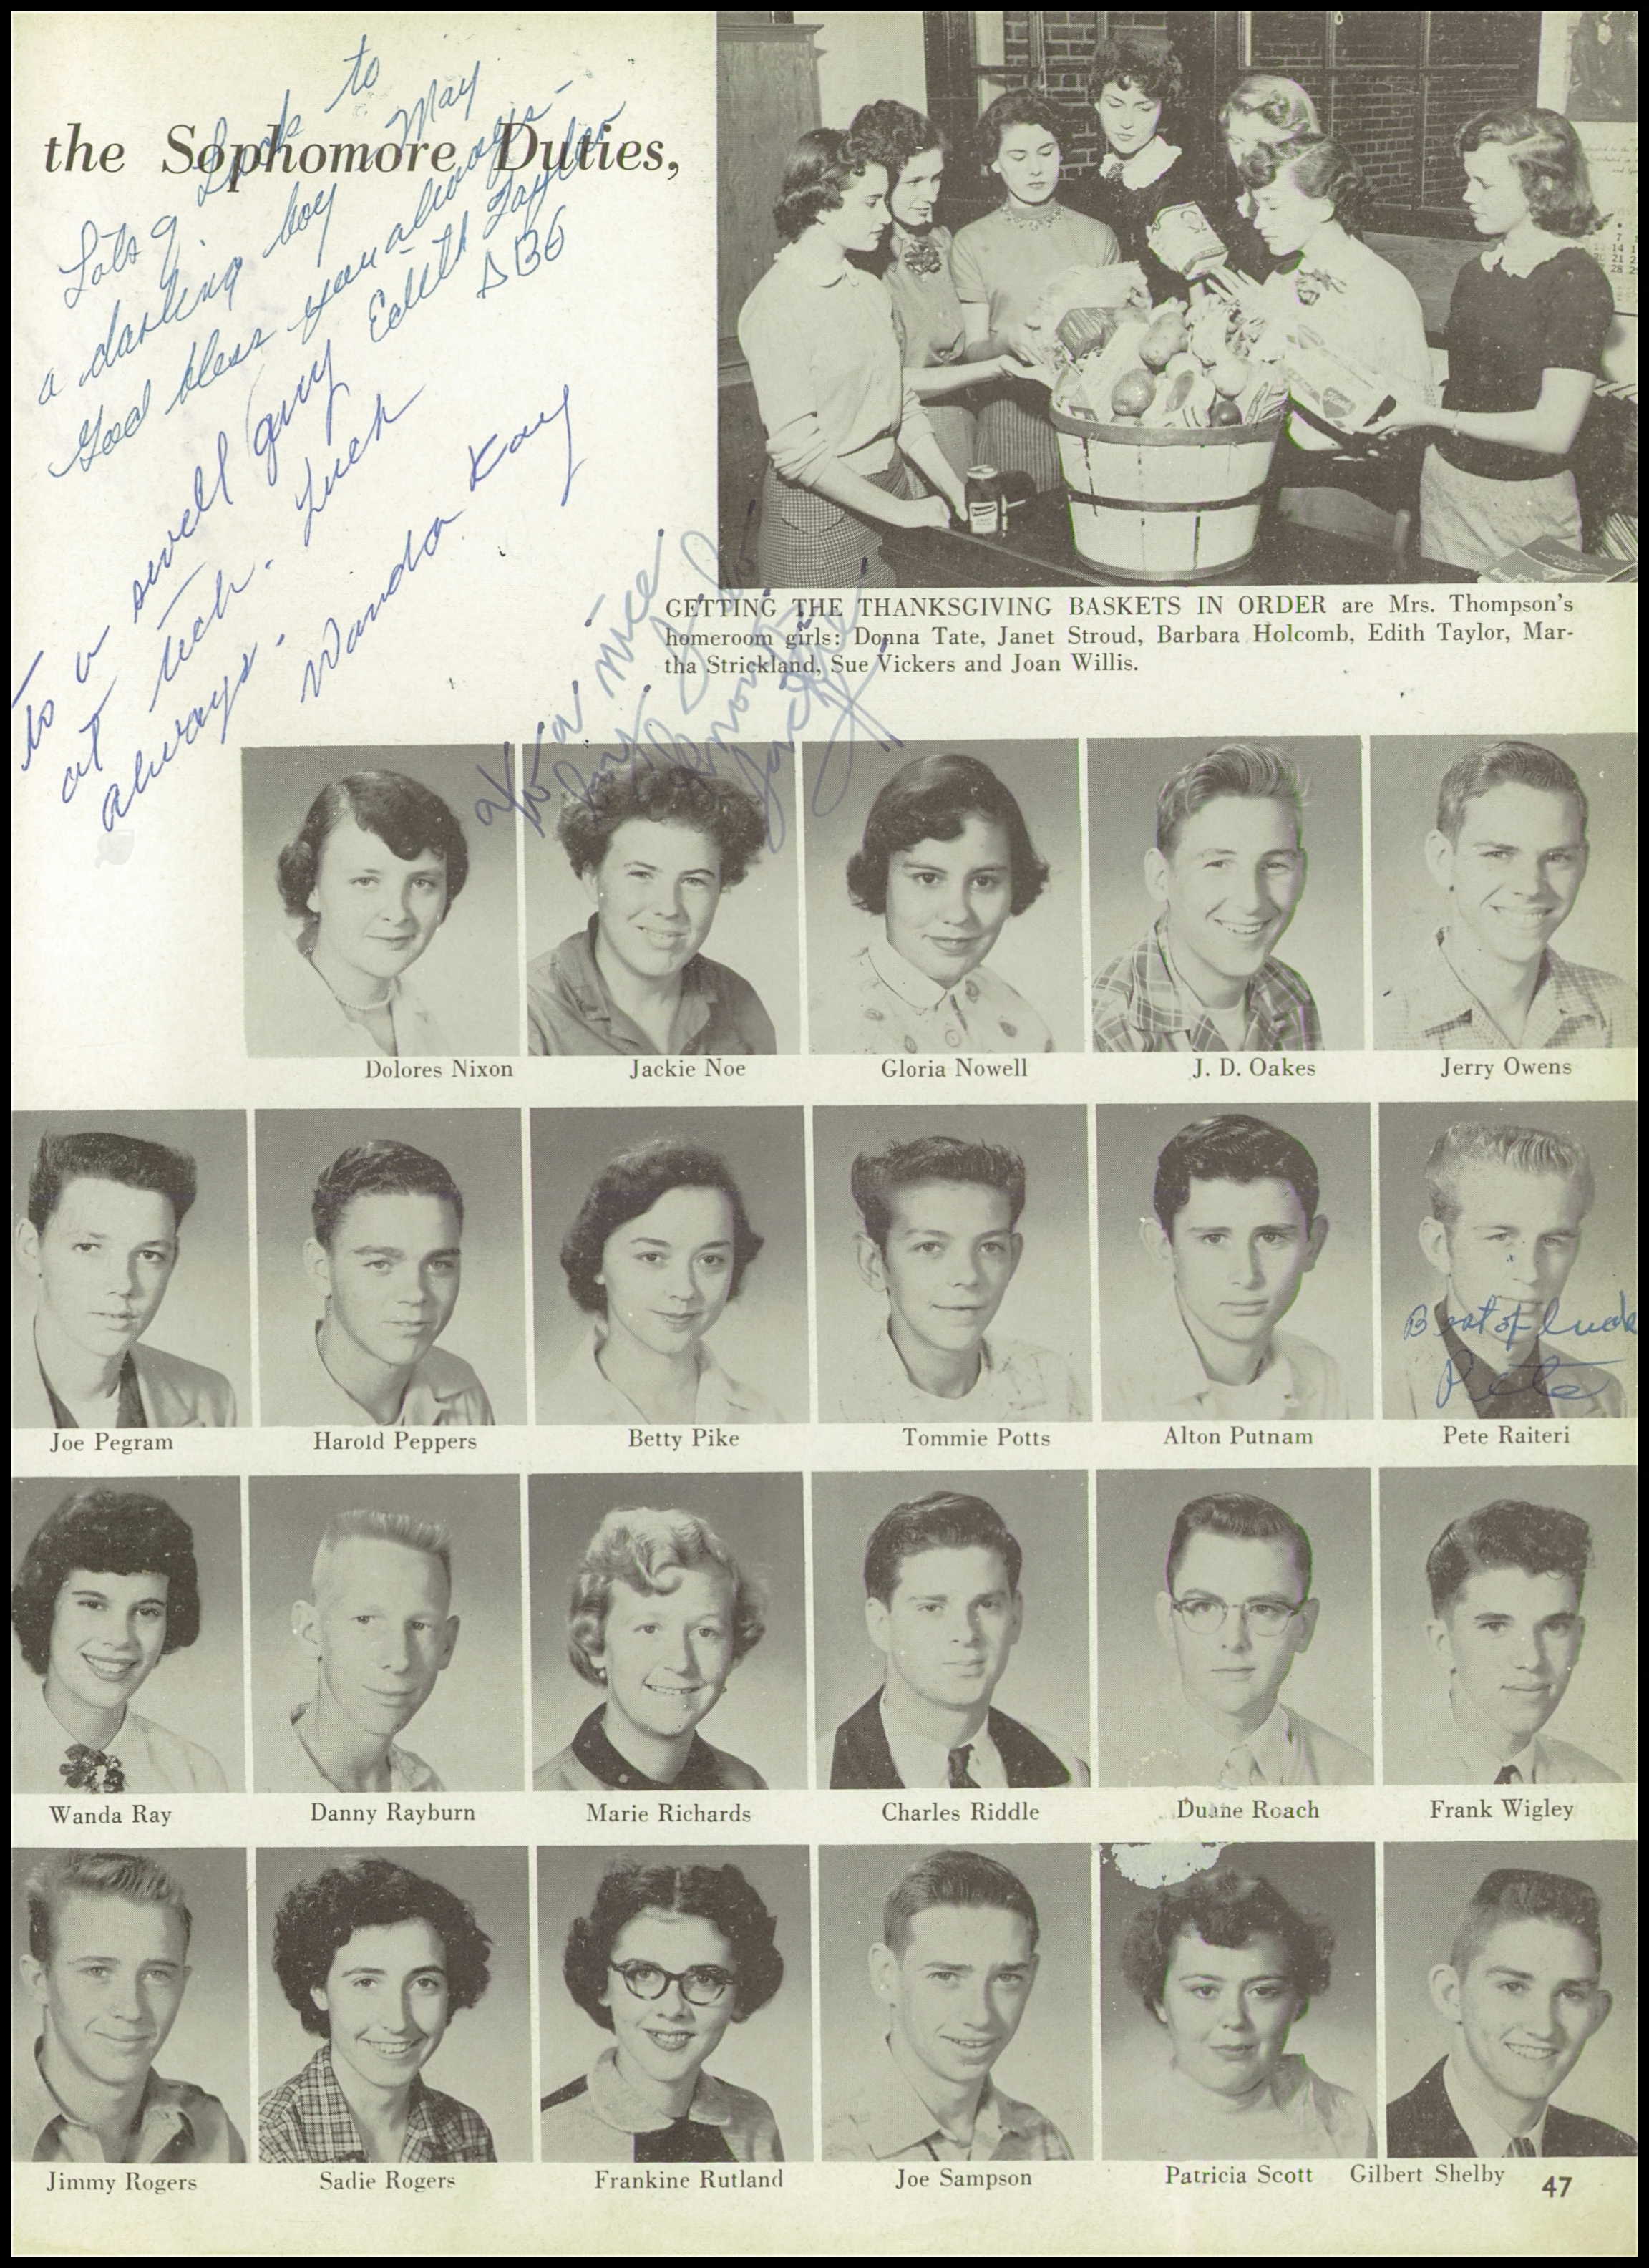 the Sophomore Duties,
Lots of Luck to
a darling boy May
God bless you always-
Edith Taylor
DBG
to a swell guy
at tech. Luck
always.
Wanda Kay
To a nice
Jackie
GETTING THE THANKSGIVING BASKETS IN ORDER are Mrs. Thompson's
homeroom girls: Donna Tate, Janet Stroud, Barbara Holcomb, Edith Taylor, Mar-
tha Strickland, Sue Vickers and Joan Willis.
7
14
21 2
28 2
Dolores Nixon Jackie Noe Gloria Nowell J. D. Oakes Jerry Owens
Best of luck
Pete
Joe Pegram Harold Peppers Betty Pike Tommie Potts Alton Putnam Pete Raiteri
Wanda Ray Danny Rayburn Marie Richards Charles Riddle Duane Roach Frank Wigley
Jimmy Rogers Sadie Rogers Frankine Rutland Joe Sampson Patricia Scott Gilbert Shelby
47